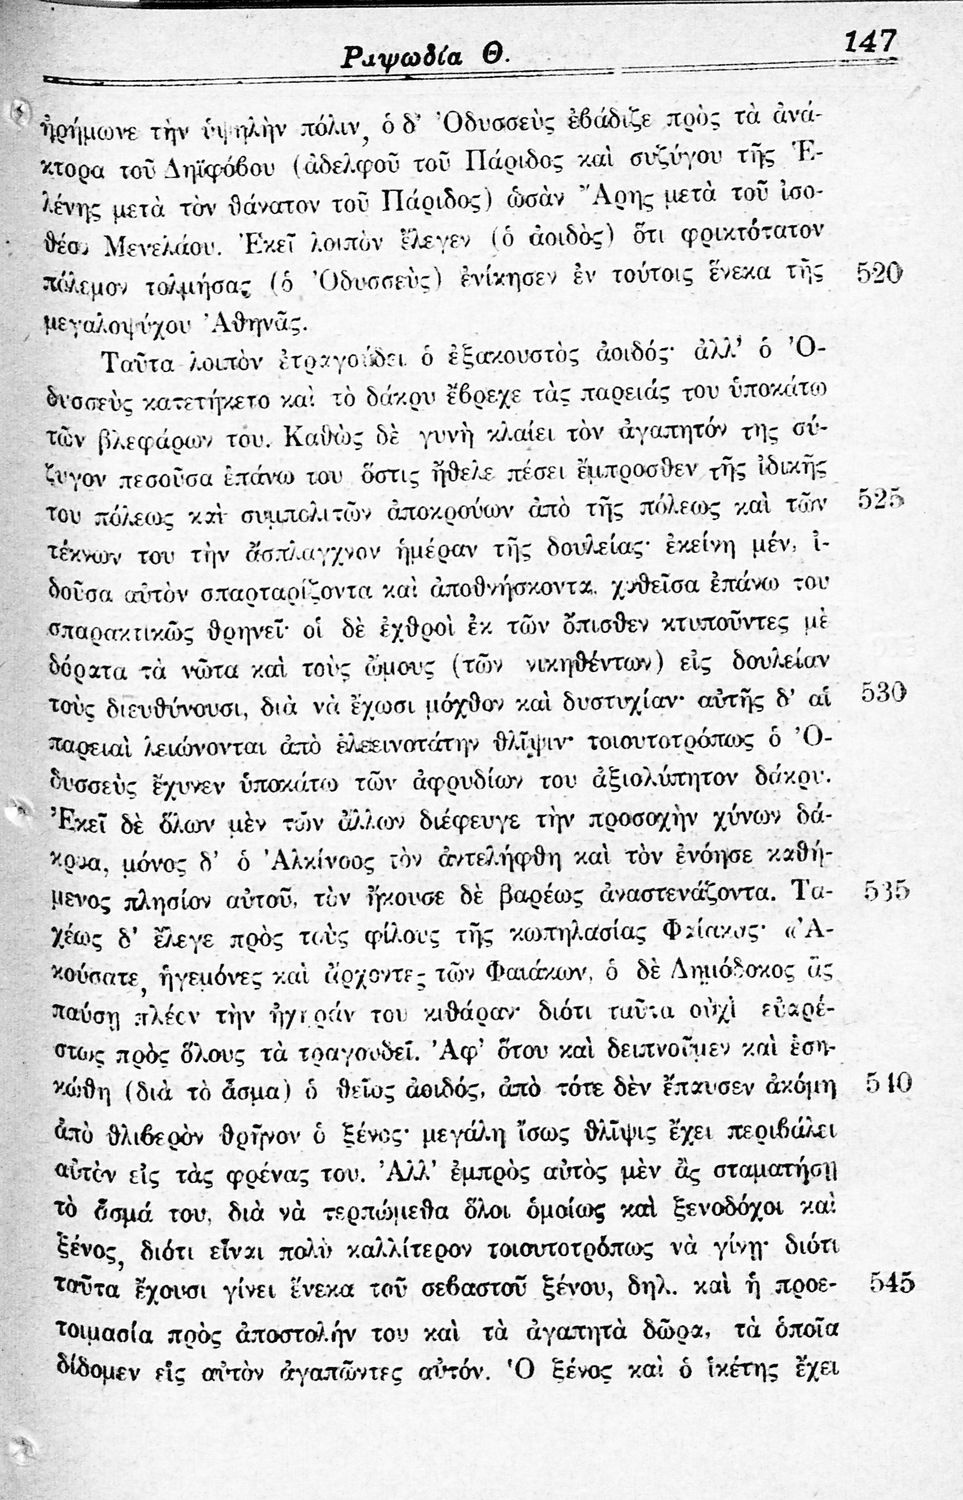 Ραψωδία Θ. 147
ἠρήμωνε τὴν ὑψηλὴν πόλιν, ὁ δ' Ὀδυσσεὺς ἐβάδιζε πρὸς τὰ ἀνά-
κτορα τοῦ Δηϊφόβου (ἀδελφοῦ τοῦ Πάριδος καὶ συζύγου τῆς Ἑ-
λένης μετὰ τὸν θάνατον τοῦ Πάριδος) ὡσὰν Ἄρης μετὰ τοῦ ἰσο-
θέου Μενελάου. Ἐκεῖ λοιπὸν ἔλεγεν (ὁ ἀοιδὸς) ὅτι φρικτότατον
πόλεμον τολμήσας (ὁ Ὀδυσσεὺς) ἐνίκησεν ἐν τούτοις ἕνεκα τῆς 520
μεγαλοψύχου Ἀθηνᾶς.
Ταῦτα λοιπὸν ἐτραγούδει ὁ ἐξακουστὸς ἀοιδός· ἀλλ' ὁ Ὀ-
δυσσεὺς κατετήκετο καὶ τὸ δάκρυ ἔβρεχε τὰς παρειάς του ὑποκάτω
τῶν βλεφάρων του. Καθὼς δὲ γυνὴ κλαίει τὸν ἀγαπητόν της σύ-
ζυγον πεσοῦσα ἐπάνω του ὅστις ἤθελε πέσει ἔμπροσθεν τῆς ἰδικῆς
του πόλεως καὶ συμπολιτῶν ἀποκρούων ἀπὸ τῆς πόλεως καὶ τῶν 525
τέκνων του τὴν ἄσπλαγχνον ἡμέραν τῆς δουλείας· ἐκείνη μέν, ἰ-
δοῦσα αὐτὸν σπαρταρίζοντα καὶ ἀποθνήσκοντα, χυθεῖσα ἐπάνω του
σπαρακτικῶς θρηνεῖ· οἱ δὲ ἐχθροὶ ἐκ τῶν ὄπισθεν κτυποῦντες μὲ
δόρατα τὰ νῶτα καὶ τοὺς ὤμους (τῶν νικηθέντων) εἰς δουλείαν
τοὺς διευθύνουσι, διὰ νὰ ἔχωσι μόχθον καὶ δυστυχίαν· αὐτῆς δ' αἱ 530
παρειαὶ λειώνονται ἀπὸ ἐλεεινοτάτην θλῖψιν· τοιουτοτρόπως ὁ Ὀ-
δυσσεὺς ἔχυνεν ὑποκάτω τῶν ὀφρυδίων του ἀξιολύπητον δάκρυ.
Ἐκεῖ δὲ ὅλων μὲν τῶν ἄλλων διέφευγε τὴν προσοχὴν χύνων δά-
κρυα, μόνος δ' ὁ Ἀλκίνοος τὸν ἀντελήφθη καὶ τὸν ἐνόησε καθή-
μενος πλησίον αὐτοῦ, τὸν ἤκουσε δὲ βαρέως ἀναστενάζοντα. Τα- 535
χέως δ' ἔλεγε πρὸς τοὺς φίλους τῆς κωπηλασίας Φαίακας· «Ἀ-
κούσατε, ἡγεμόνες καὶ ἄρχοντες τῶν Φαιάκων, ὁ δὲ Δημόδοκος ἂς
παύσῃ πλέον τὴν ἠχηράν του κιθάραν· διότι ταῦτα οὐχὶ εὐαρέ-
στως πρὸς ὅλους τὰ τραγουδεῖ. Ἀφ' ὅτου καὶ δειπνοῦμεν καὶ ἐση-
κώθη (διὰ τὸ ἆσμα) ὁ θεῖος ἀοιδός, ἀπὸ τότε δὲν ἔπαυσεν ἀκόμη 540
ἀπὸ θλιβερὸν θρῆνον ὁ ξένος· μεγάλη ἴσως θλῖψις ἔχει περιβάλει
αὐτὸν εἰς τὰς φρένας του. Ἀλλ' ἐμπρὸς αὐτὸς μὲν ἂς σταματήσῃ
τὸ ἆσμά του, διὰ νὰ τερπώμεθα ὅλοι ὁμοίως καὶ ξενοδόχοι καὶ
ξένος, διότι εἶναι πολὺ καλλίτερον τοιουτοτρόπως νὰ γίνῃ· διότι
ταῦτα ἔχουσι γίνει ἕνεκα τοῦ σεβαστοῦ ξένου, δηλ. καὶ ἡ προε- 545
τοιμασία πρὸς ἀποστολήν του καὶ τὰ ἀγαπητὰ δῶρα, τὰ ὁποῖα
δίδομεν εἰς αὐτὸν ἀγαπῶντες αὐτόν. Ὁ ξένος καὶ ὁ ἱκέτης ἔχει